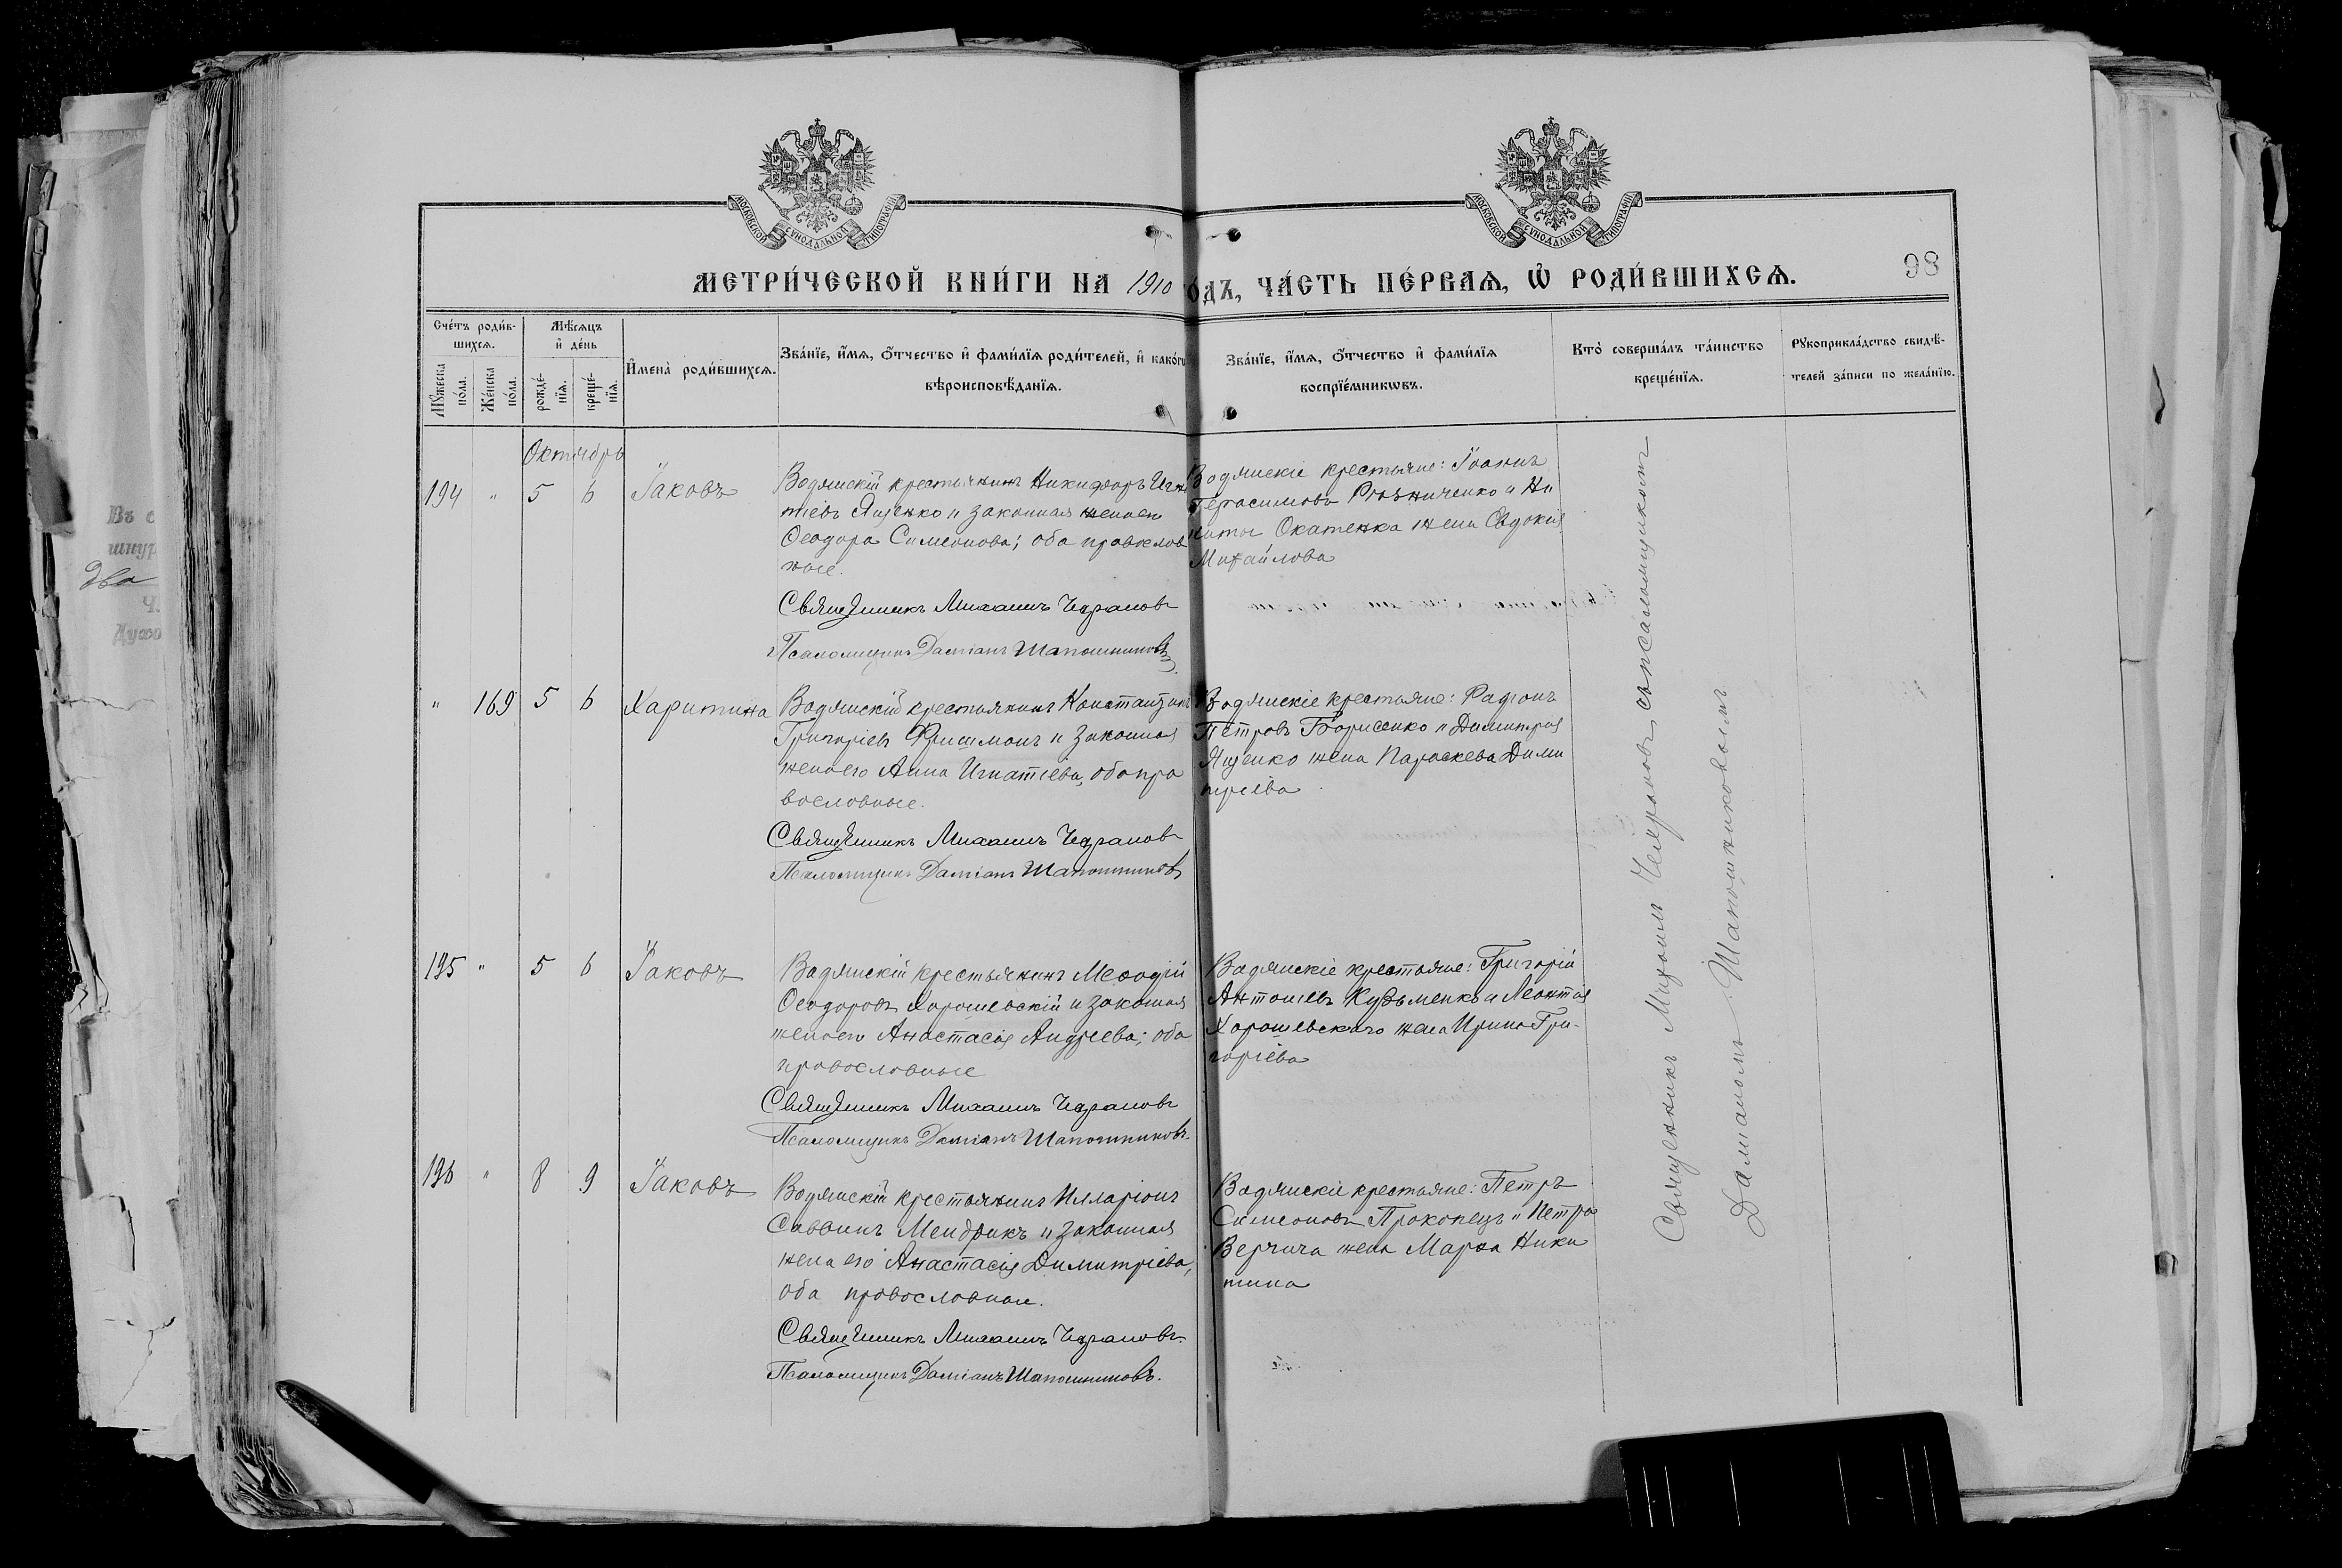 МОСКОВСКОЙ СѴНОДАЛЬНОЙ ТИПОГРАФІИ
МОСКОВСКОЙ СѴНОДАЛЬНОЙ ТИПОГРАФІИ
МЕТРИ́ЧЕСКОЙ КНИ́ГИ НА 1910 ГО́ДЪ, ЧА́СТЬ ПЕ́РВАѦ, Ѡ҆ РОДИ́ВШИХСѦ.
98
Сче́тъ роди́в-
шихсѧ.
Мꙋ́жеска по́ла.
Же́нска по́ла.
Мѣ́сѧцъ
и҆ де́нь
рожде́-
нїѧ.
креще́-
нїѧ.
И҆мена̀ роди́вшихсѧ.
Зва́нїе, и҆́мѧ, ѻ҆́тчество и҆ фами́лїѧ роди́телей, и҆ како́гѡ
вѣроисповѣ́данїѧ.
Зва́нїе, и҆́мѧ, ѻ҆́тчество и҆ фами́лїѧ
воспрїе́мникѡвъ.
Кто̀ соверша́лъ та́инство
креще́нїѧ.
Рꙋкоприкла́дство свидѣ́-
телей за́писи по жела́нїю.
Октябрь
194 " 5 6 Іаковъ
Водянскій крестьянинъ Никифоръ Игна
тіевъ Ященко и законная жена его
Ѳеодора Симеонова; оба православ
ные.
Священникъ Михаилъ Чефранов
Псаломщикъ Даміанъ Шапошниковъ
Водянскіе крестьяне: Іоаннъ
Герасимовъ Резниченко и Ни
киты Окатенка жена Евдокія
Михайлова
" 169 5 6 Харитина
Водянскій крестьянинъ Константинъ
Григоріевъ Фришманъ и законная
жена его Анна Игнатіева, оба пра
вославные.
Священникъ Михаилъ Чефранов
Псаломщикъ Даміанъ Шапошниковъ
Водянскіе крестьяне: Родіонъ
Петровъ Борисенко и Димитрія
Ященко жена Параскева Дими
тріева
195 " 5 6 Іаковъ
Водянскій крестьянинъ Меѳодій
Ѳеодоровъ Хорошевскій и законная
жена его Анастасія Андреева; оба
православные
Священникъ Михаилъ Чефранов
Псаломщикъ Даміанъ Шапошниковъ.
Водянскіе крестьяне: Григорій
Антоніевъ Кузьменко и Леонтія
Хорошевскаго жена Ирина Гри-
горіева
196 " 8 9 Іаковъ
Водянскій крестьянинъ Илларіонъ
Саввинъ Мендрикъ и законная
жена его Анастасія Димитріева,
оба православные.
Священникъ Михаилъ Чефранов.
Псаломщикъ Даміанъ Шапошниковъ.
Водянскіе крестьяне: Петръ
Симеоновъ Прокопецъ и Петра
Верчича жена Марѳа Ники
тина
Священникъ Михаилъ Чефрановъ съ псаломщикомъ
Даміаномъ Шапошниковымъ
Въ с
шнур
два
Ч.
Духо